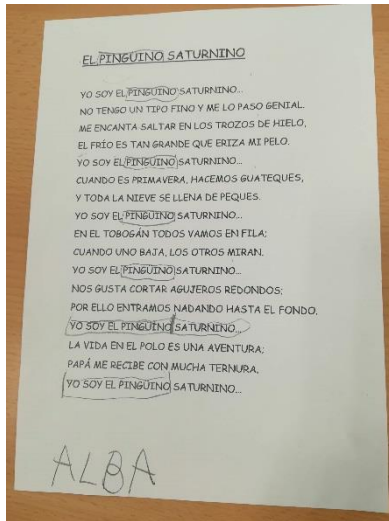 EL PINGÜINO SATURNINO
YO SOY EL PINGÜINO SATURNINO...
NO TENGO UN TIPO FINO Y ME LO PASO GENIAL.
ME ENCANTA SALTAR EN LOS TROZOS DE HIELO,
EL FRÍO ES TAN GRANDE QUE ERIZA MI PELO.
YO SOY EL PINGÜINO SATURNINO...
CUANDO ES PRIMAVERA, HACEMOS GUATEQUES,
Y TODA LA NIEVE SE LLENA DE PEQUES.
YO SOY EL PINGÜINO SATURNINO...
EN EL TOBOGÁN TODOS VAMOS EN FILA;
CUANDO UNO BAJA, LOS OTROS MIRAN.
YO SOY EL PINGÜINO SATURNINO...
NOS GUSTA CORTAR AGUJEROS REDONDOS;
POR ELLO ENTRAMOS NADANDO HASTA EL FONDO.
YO SOY EL PINGÜINO SATURNINO...
LA VIDA EN EL POLO ES UNA AVENTURA;
PAPÁ ME RECIBE CON MUCHA TERNURA.
YO SOY EL PINGÜINO SATURNINO...
ALBA